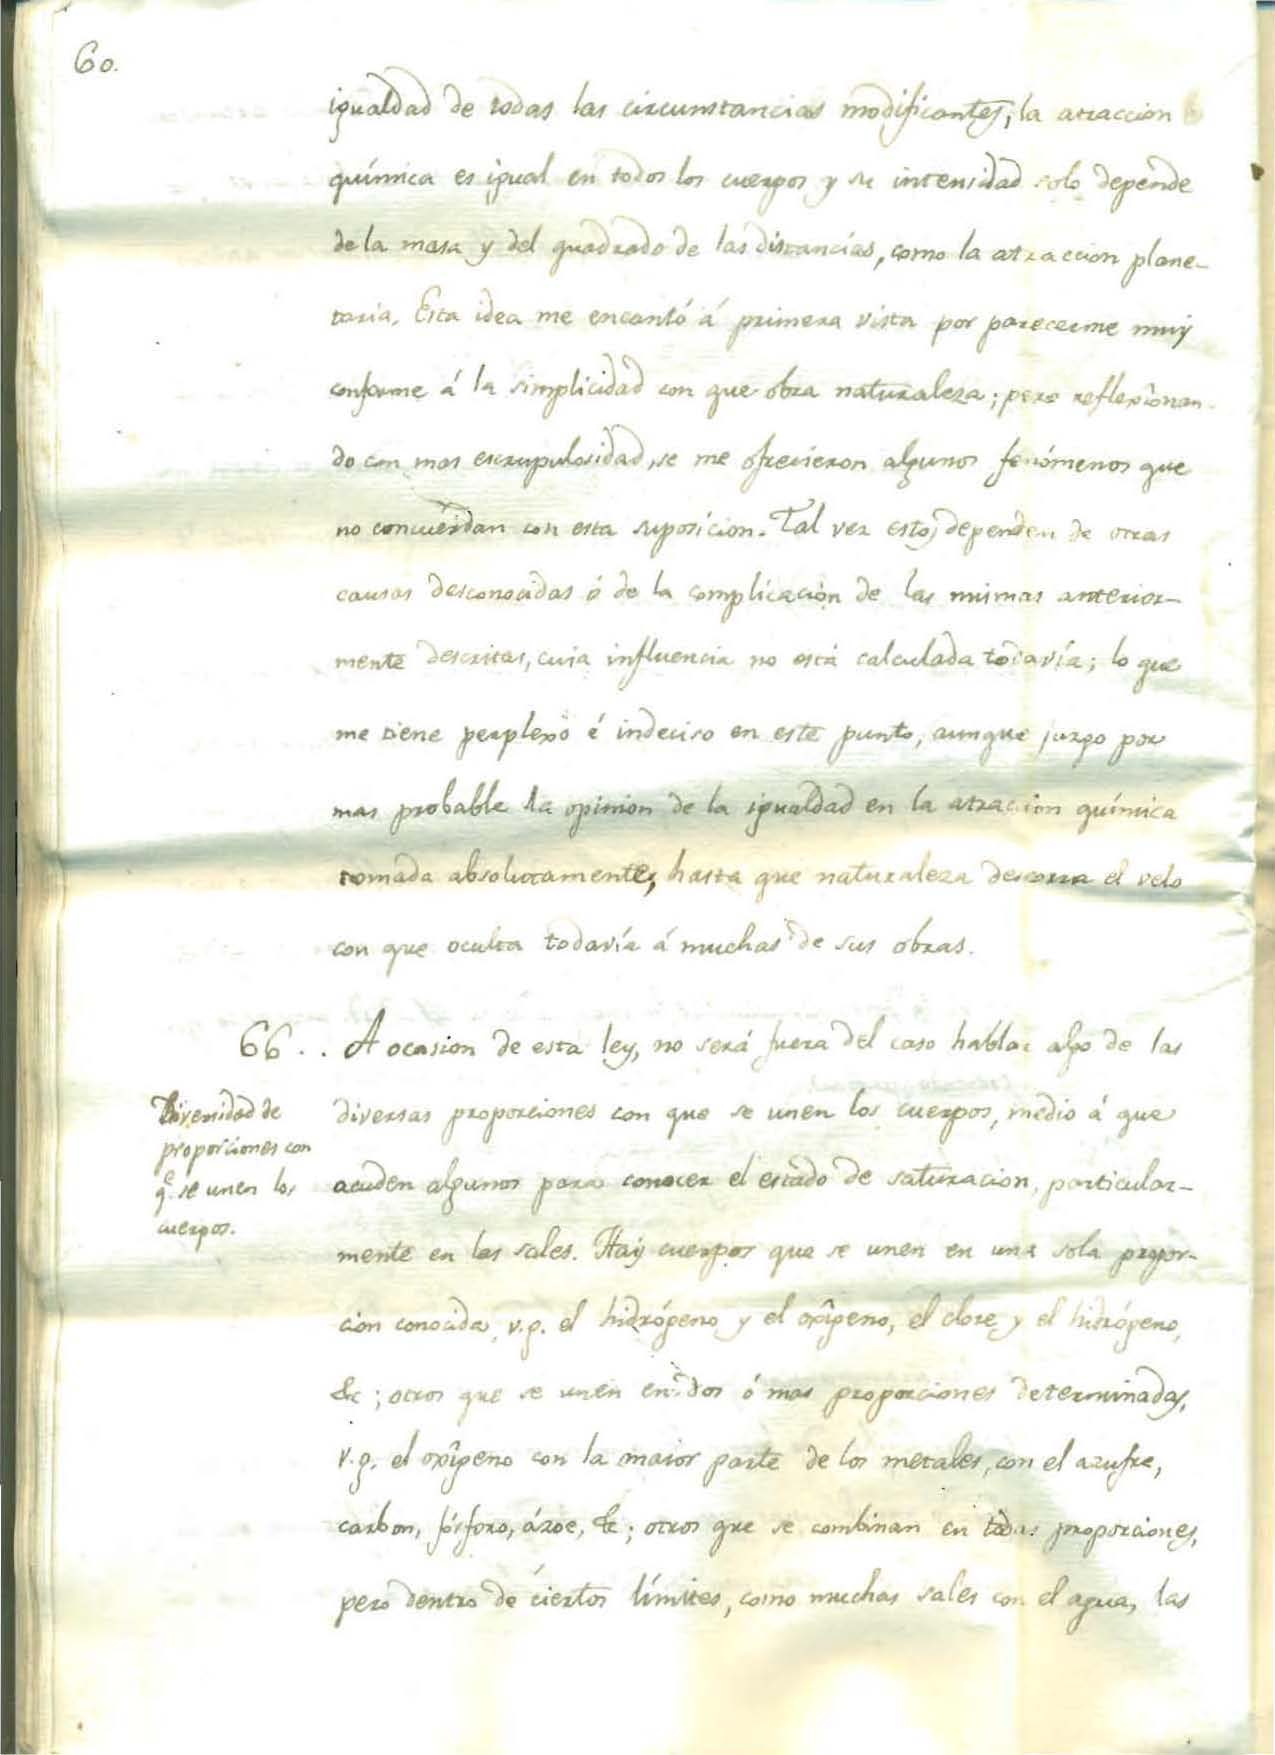 60.
igualdad de todas las circunstancias modificantes, la atraccion
química es igual en todos los cuerpos y su intensidad solo depende
de la masa y del quadrado de las distancias, como la atraccion plane-
taria. Esta idea me encantó á primera vista por parecerme muy
conforme á la simplicidad con que obra naturaleza; pero reflexîonan-
do con mas escrupulosidad, se me ofrecieron algunos fenómenos que
no concuerdan con esta suposicion. Tal vez estos dependen de otras
causas desconocidas ó de la complicación de las mismas anterior-
mente descritas, cuia influencia no está calculada todavía; lo que
me tiene perplexo é indeciso en este punto, aunque juzgo por
mas probable la opinion de la igualdad en la atraccion química
tomada absolutamente, hasta que naturaleza descorra el velo
con que oculta todavía á muchas de sus obras.
66.. A ocasion de esta ley, no será fuera del caso hablar algo de las
Diversidad de
proporciones con
q.e se unen los
cuerpos.
diversas proporciones con que se unen los cuerpos, medio á que
acuden algunos para conocer el estado de saturacion, particular-
mente en las sales. Hay cuerpos que se unen en una sola propor-
cion conocida, v.g. el hidrógeno y el oxîgeno, el clore y el hidrógeno,
&c; otros que se unen en dos ó mas proporciones determinadas,
v.g. el oxîgeno con la maior parte de los metales, con el azufre,
carbon, fósforo, ázoe, &c; otros que se combinan en todas proporciones,
pero dentro de ciertos límites, como muchas sales con el agua, las